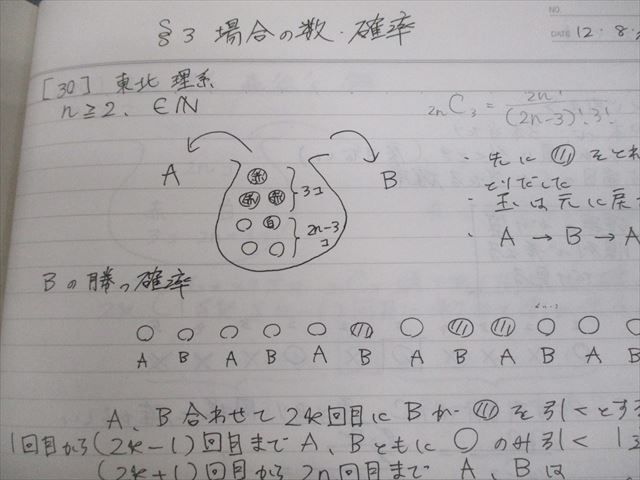 NO.
DATE 12・8・
§3 場合の数・確率
[30] 東北 理系
n≧2, ∈ℕ
2nC3 = 2n! / (2n-3)!・3!
A
B
赤
赤 赤
白
3コ
2n-3コ
・先に ◍ をとれ
とりだした
・玉は元に戻
・A→B→A
Bの勝つ確率
○ ○ ○ ○ ○ ◍ ○ ◍ ◍ ○ ○
A B A B A B A B A B A B
A、B合わせて2k回目にBが ◍ を引くとす
1回目から(2k-1)回目までA、Bともに ○ のみ引く
(2k+1)回目から2n回目まで A、Bは